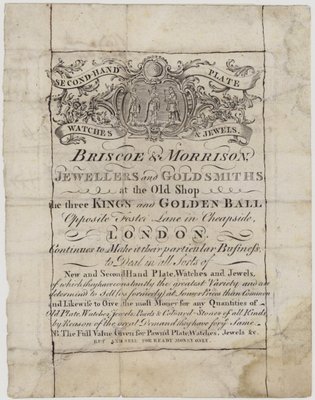 SECOND HAND PLATE
WATCHES & JEWELS,
BRISCOE & MORRISON,
JEWELLERS and GOLDSMITHS
at the Old Shop
the three KINGS and GOLDEN BALL
Opposite Foster Lane in Cheapside,
LONDON.
Continues to Make it their particular Business,
to Deal in all Sorts of
New and Second Hand Plate, Watches and Jewels,
of which they have constantly the greatest Variety and are
determin'd to sell (as formerly) at Lower Prices than Common
and Likewise to Give the most Money for any Quantities of
Old Plate, Watches, Jewels, Pearls & Colour'd Stones of all Kinds
by Reason of the great Demand they have for ye Same.
NB. The Full Value Given for Pawn'd Plate, Watches, Jewels &c.
BUY AND SELL FOR READY MONEY ONLY.